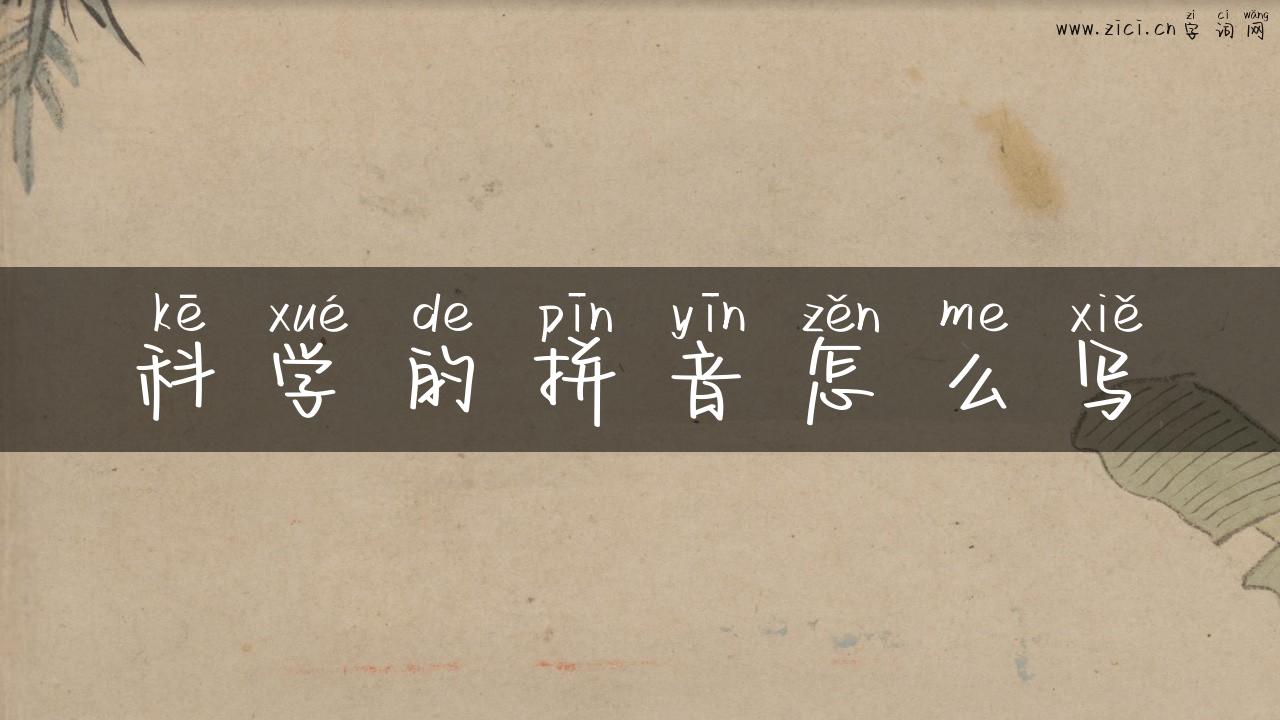 zì cí wǎng
www.zici.cn 字词网
kē xué de pīn yīn zěn me xiě
科学的拼音怎么写